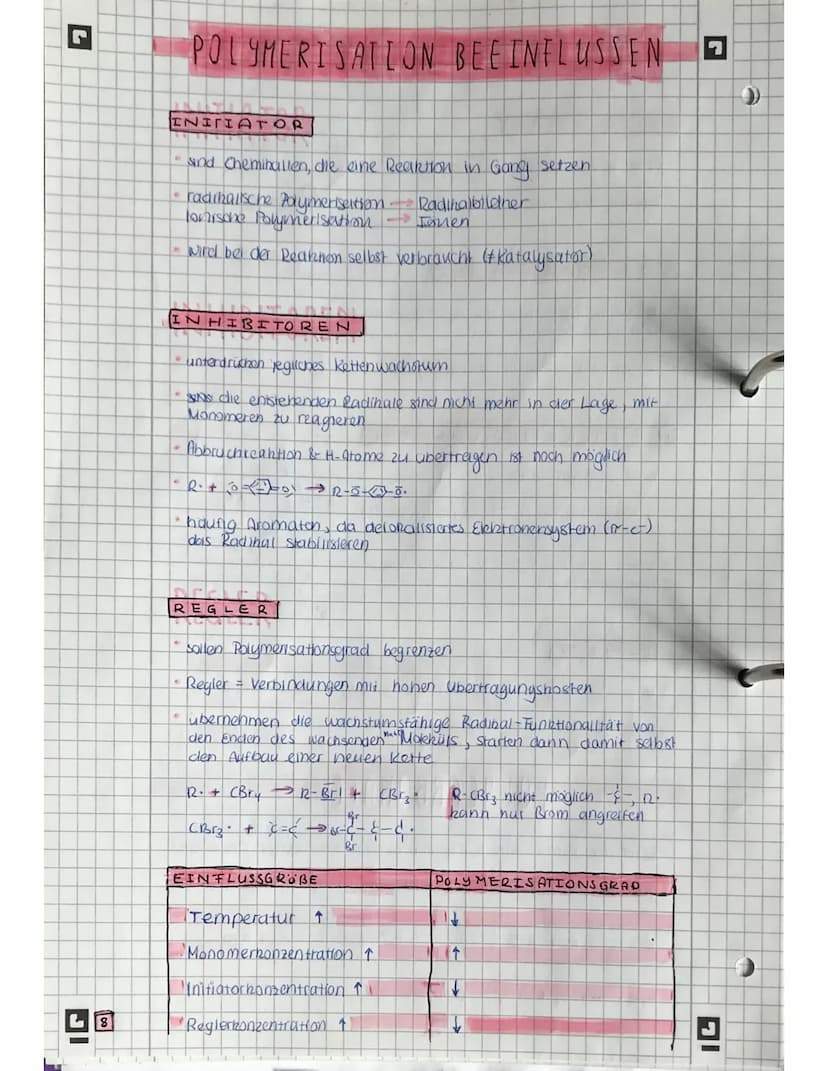 POLYMERISATION BEEINFLUSSEN
INITIATOR
• sind Chemikalien, die eine Reaktion in Gang setzen
• radikalische Polymerisation → Radikalbildner
Ionische Polymerisation → Ionen
• wird bei der Reaktion selbst verbraucht (≠Katalysator)
INHIBITOREN
• unterdrücken jegliches Kettenwachstum
• die entstehenden Radikale sind nicht mehr in der Lage, mit
Monomeren zu reagieren
• Abbruchreaktion & H-Atome zu übertragen ist noch möglich
• R· + O=⌬=O → R-O-⌬-O·
• häufig Aromaten, da delokalisiertes Elektronensystem (π-e-)
das Radikal stabilisieren
REGLER
• sollen Polymerisationsgrad begrenzen
• Regler = Verbindungen mit hohen Übertragungskosten
• übernehmen die wachstumsfähige Radikal-Funktionalität von
den Enden des wachsenden Moleküls, starten dann damit selbst
den Aufbau einer neuen Kette
R· + CBr4 → R-Br| + CBr3· R-CBr3 nicht möglich -C-, R·
kann nur Brom angreifen
CBr3· + C=C → Br-C-C-C·
Br
Br
EINFLUSSGRÖßE POLYMERISATIONSGRAD
Temperatur ↑ ↓
Monomerkonzentration ↑ ↑
Initiatorkonzentration ↑ ↓
Reglerkonzentration ↑ ↓
8